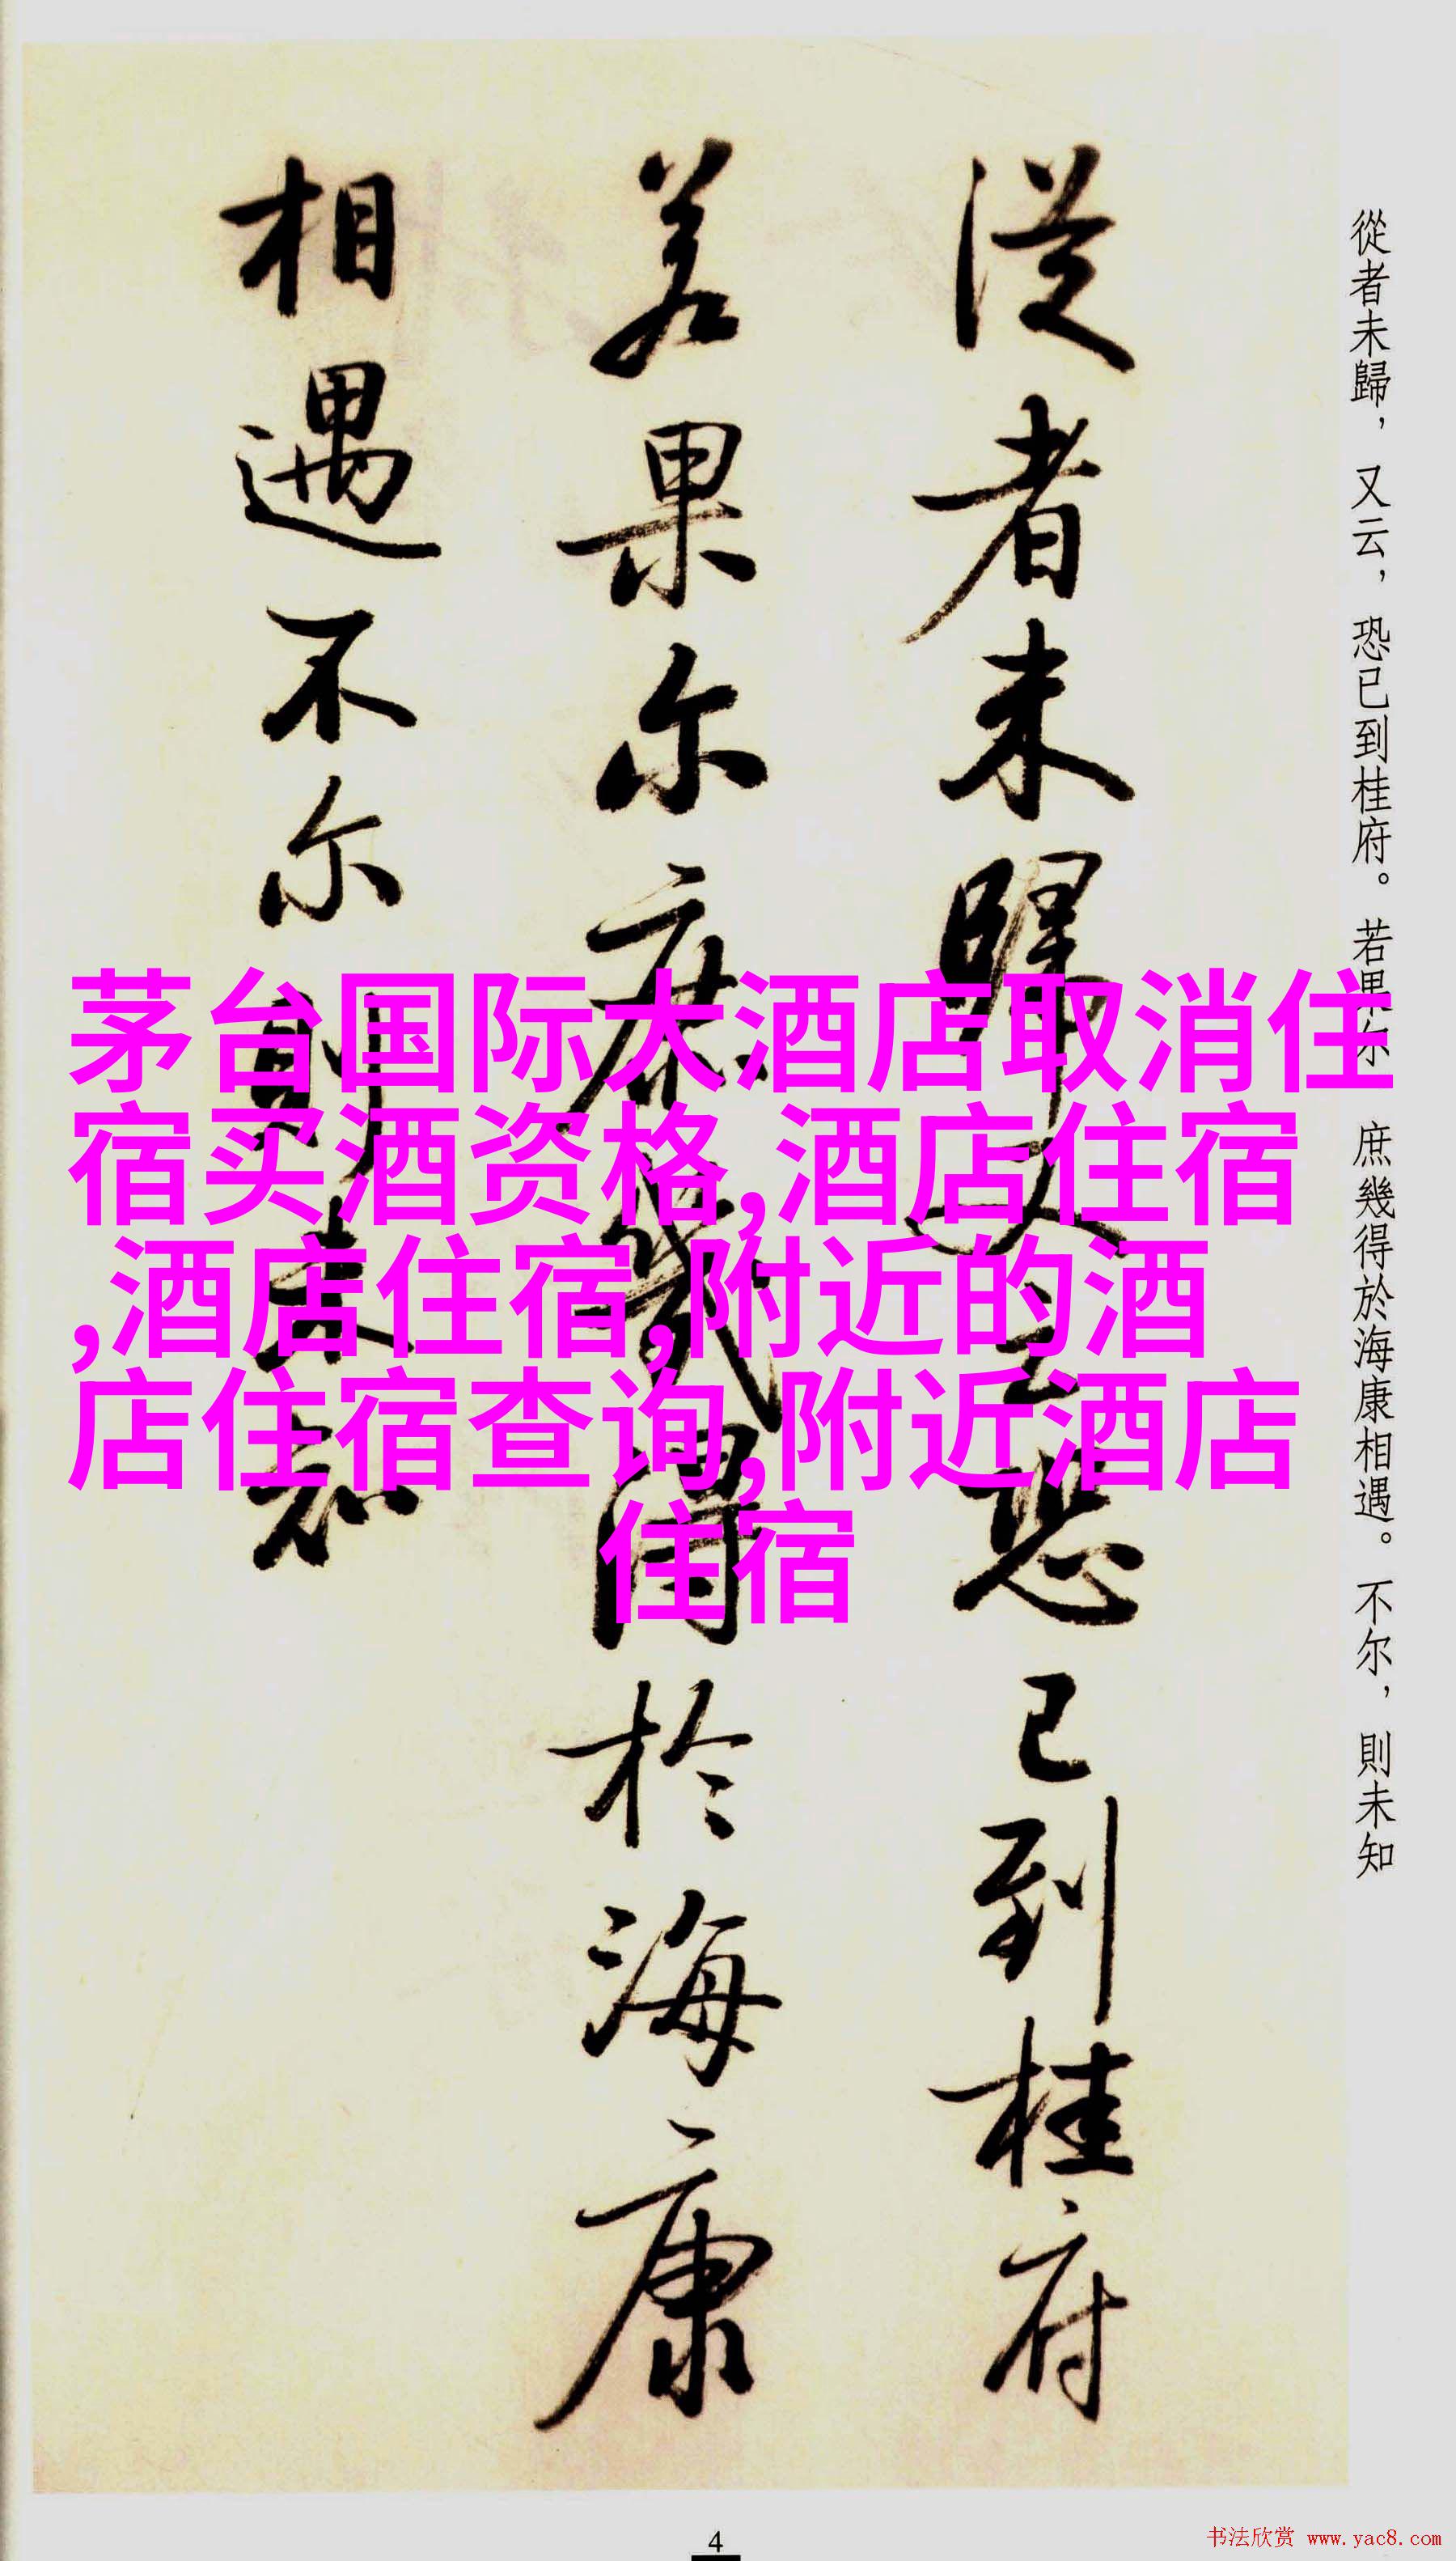 從者未歸，又云，恐已到桂府。若果尔，庶幾得於海康相遇。不尔，則未知
従者未歸又云恐已到桂府
若果尔庶幾得於海康
相遇不尔則未知
茅台国际大酒店取消住
宿买酒资格,酒店住宿
,酒店住宿,附近的酒
店住宿查询,附近酒店
住宿
4
书法欣赏 www.yac8.com